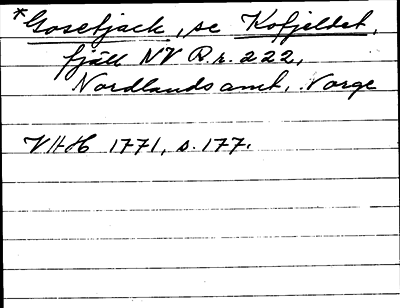 *Gosetjack, se Kofjeldet,
fjäll NV R.r. 222,
Nordlands amt, Norge
VHH 1771, s. 177.